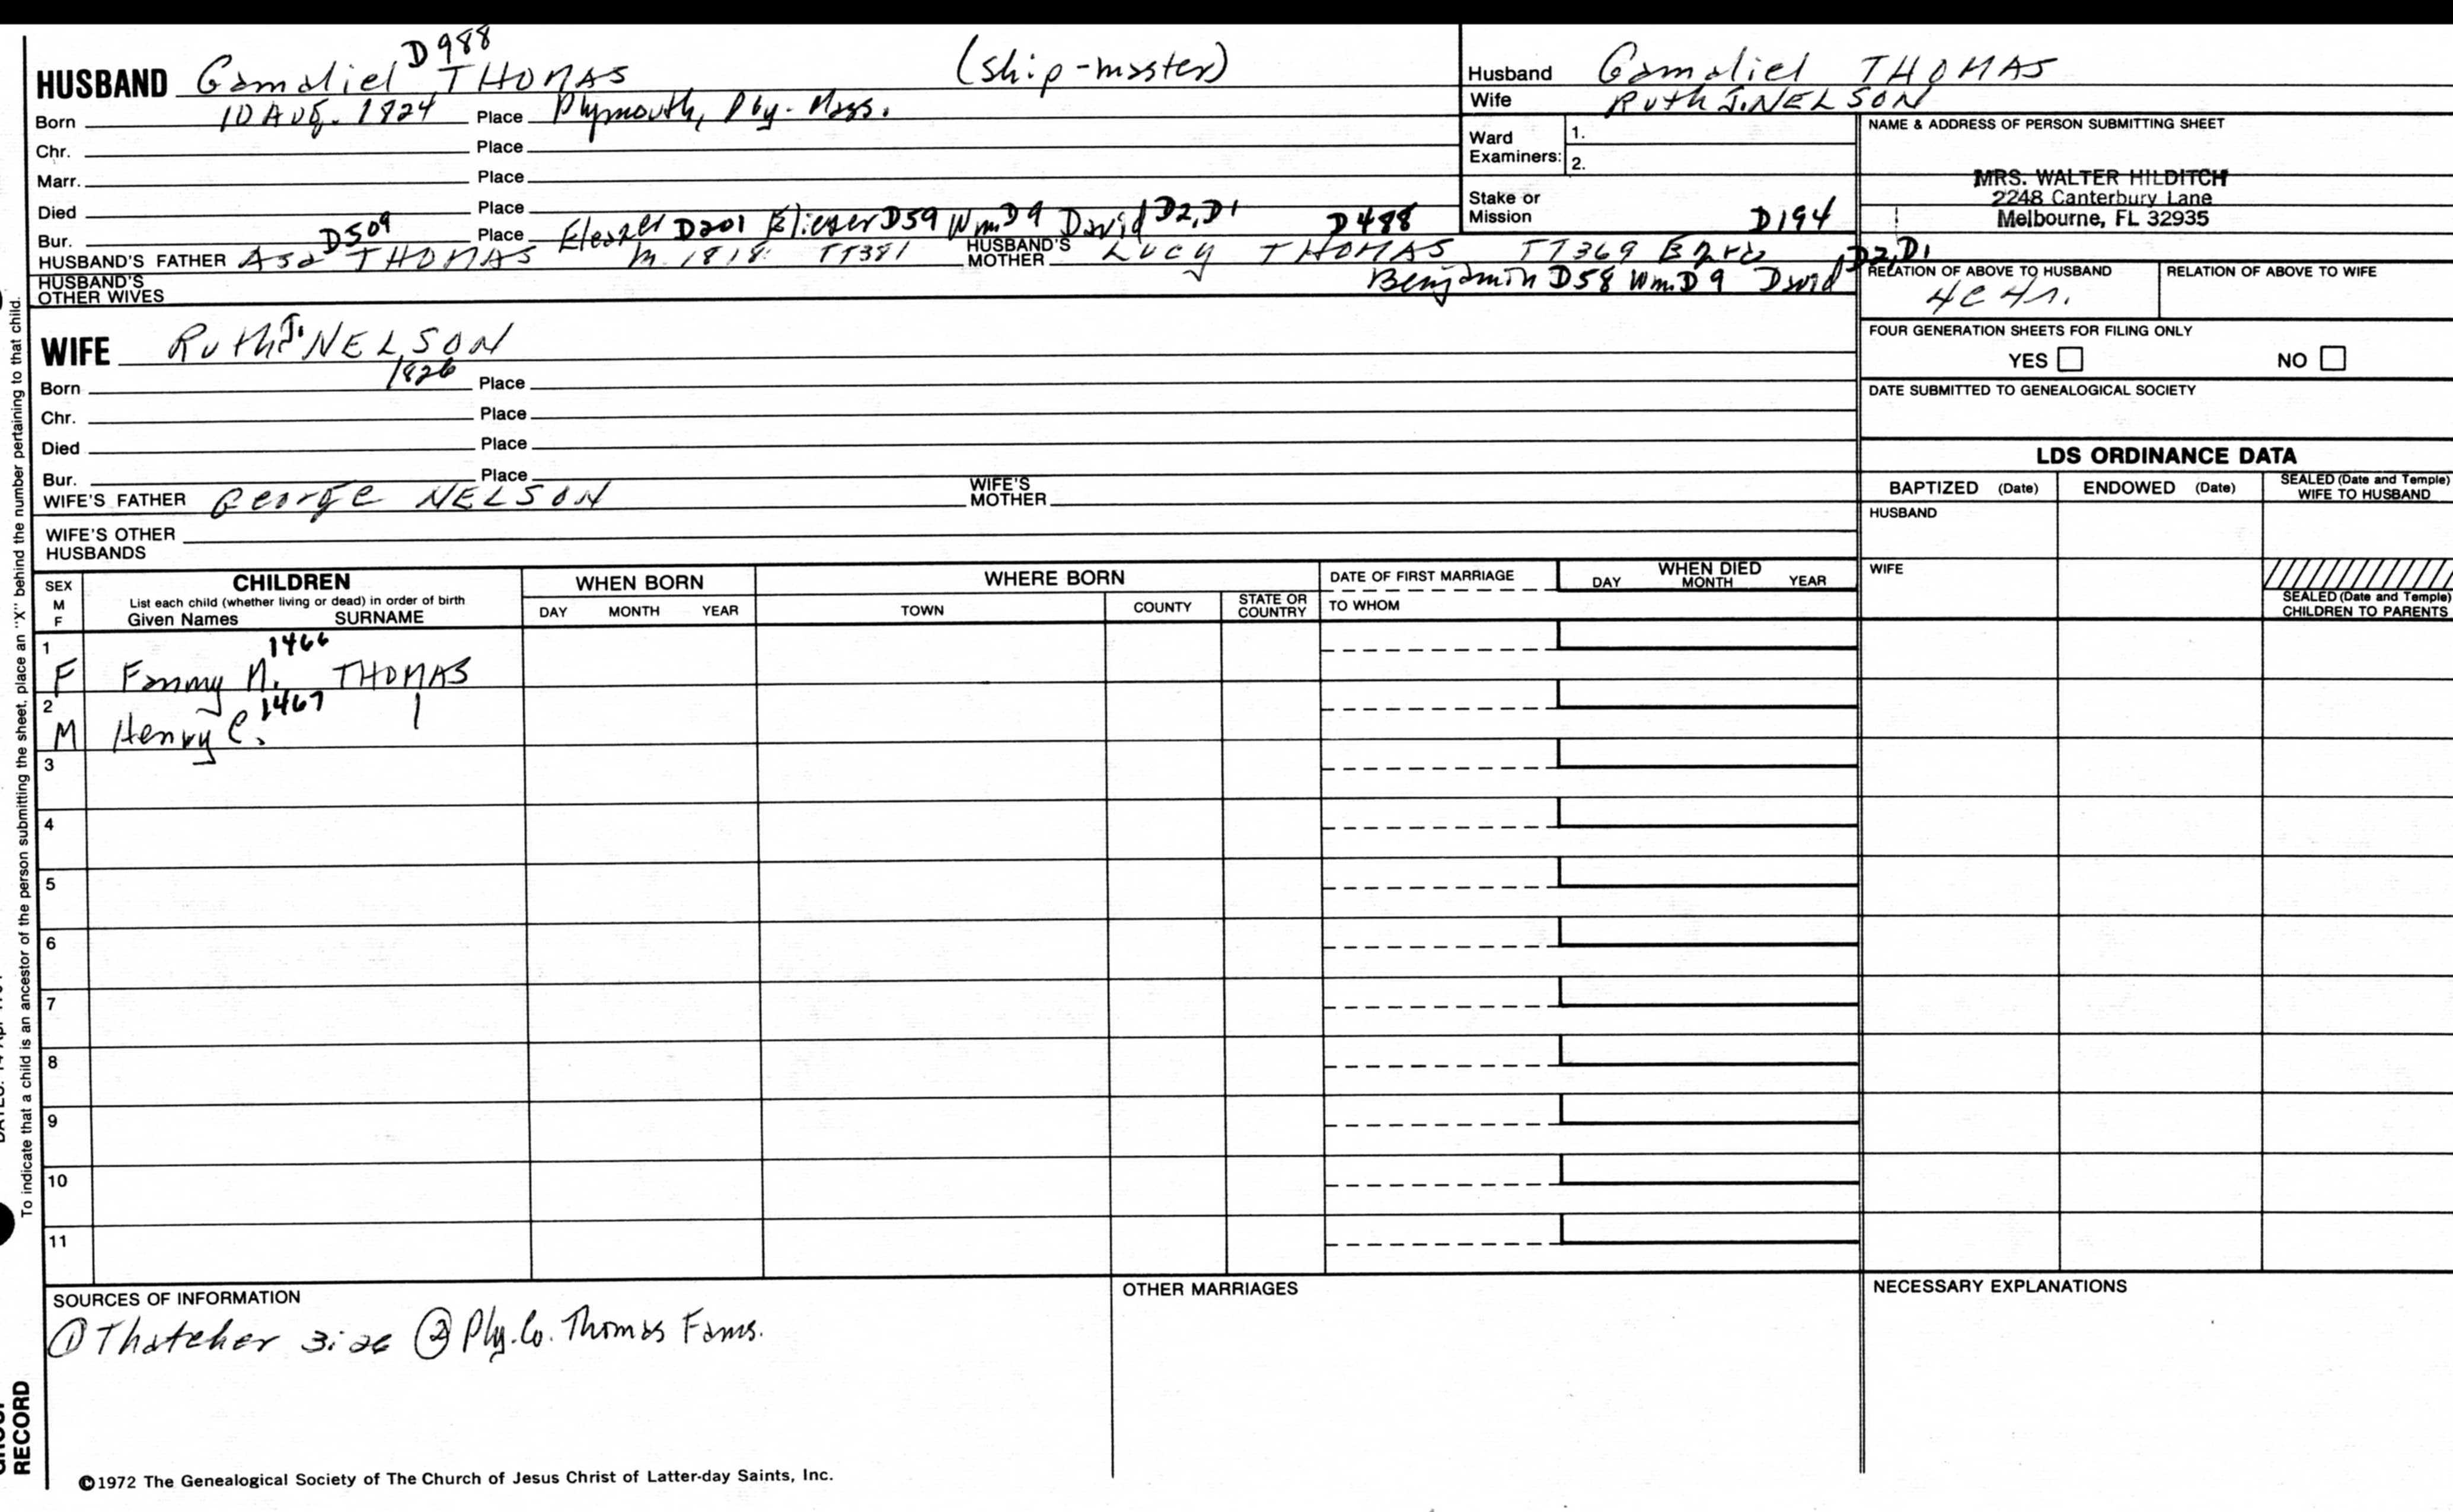 D988
HUSBAND Gamaliel THOMAS (ship-master)
Born 10 Aug. 1824 Place Plymouth, Ply. Mass.
Chr. Place
Marr. Place
Died Place
Bur. Place Eleazer D201 Eliezer D59 Wm D9 David D2, D1
D509 D488 D194
HUSBAND'S FATHER Asa THOMAS m. 1818 TT381 HUSBAND'S MOTHER Lucy THOMAS TT369 Ezra
HUSBAND'S OTHER WIVES Benjamin D58 Wm. D9 David D2, D1
WIFE Ruth J. NELSON
Born 1826 Place
Chr. Place
Died Place
Bur. Place
WIFE'S FATHER George NELSON WIFE'S MOTHER
WIFE'S OTHER HUSBANDS
Husband Gamaliel THOMAS
Wife Ruth J. NELSON
Ward Examiners: 1.
2.
Stake or Mission
NAME & ADDRESS OF PERSON SUBMITTING SHEET
MRS. WALTER HILDITCH
2248 Canterbury Lane
Melbourne, FL 32935
RELATION OF ABOVE TO HUSBAND RELATION OF ABOVE TO WIFE
4C4r.
FOUR GENERATION SHEETS FOR FILING ONLY
YES NO
DATE SUBMITTED TO GENEALOGICAL SOCIETY
LDS ORDINANCE DATA
BAPTIZED (Date) ENDOWED (Date) SEALED (Date and Temple) WIFE TO HUSBAND
HUSBAND
WIFE
SEALED (Date and Temple) CHILDREN TO PARENTS
SEX M F CHILDREN WHEN BORN WHERE BORN DATE OF FIRST MARRIAGE WHEN DIED
List each child (whether living or dead) in order of birth
Given Names SURNAME DAY MONTH YEAR TOWN COUNTY STATE OR COUNTRY TO WHOM DAY MONTH YEAR
1 1466
F Fanny N. THOMAS
2 1467
M Henry C.
3
4
5
6
7
8
9
10
11
SOURCES OF INFORMATION OTHER MARRIAGES NECESSARY EXPLANATIONS
① Thatcher ② Ply. Co. Thomas Fams.
©1972 The Genealogical Society of The Church of Jesus Christ of Latter-day Saints, Inc.
To indicate that a child is an ancestor of the person submitting the sheet, place an "X" behind the number pertaining to that child.
RECORD